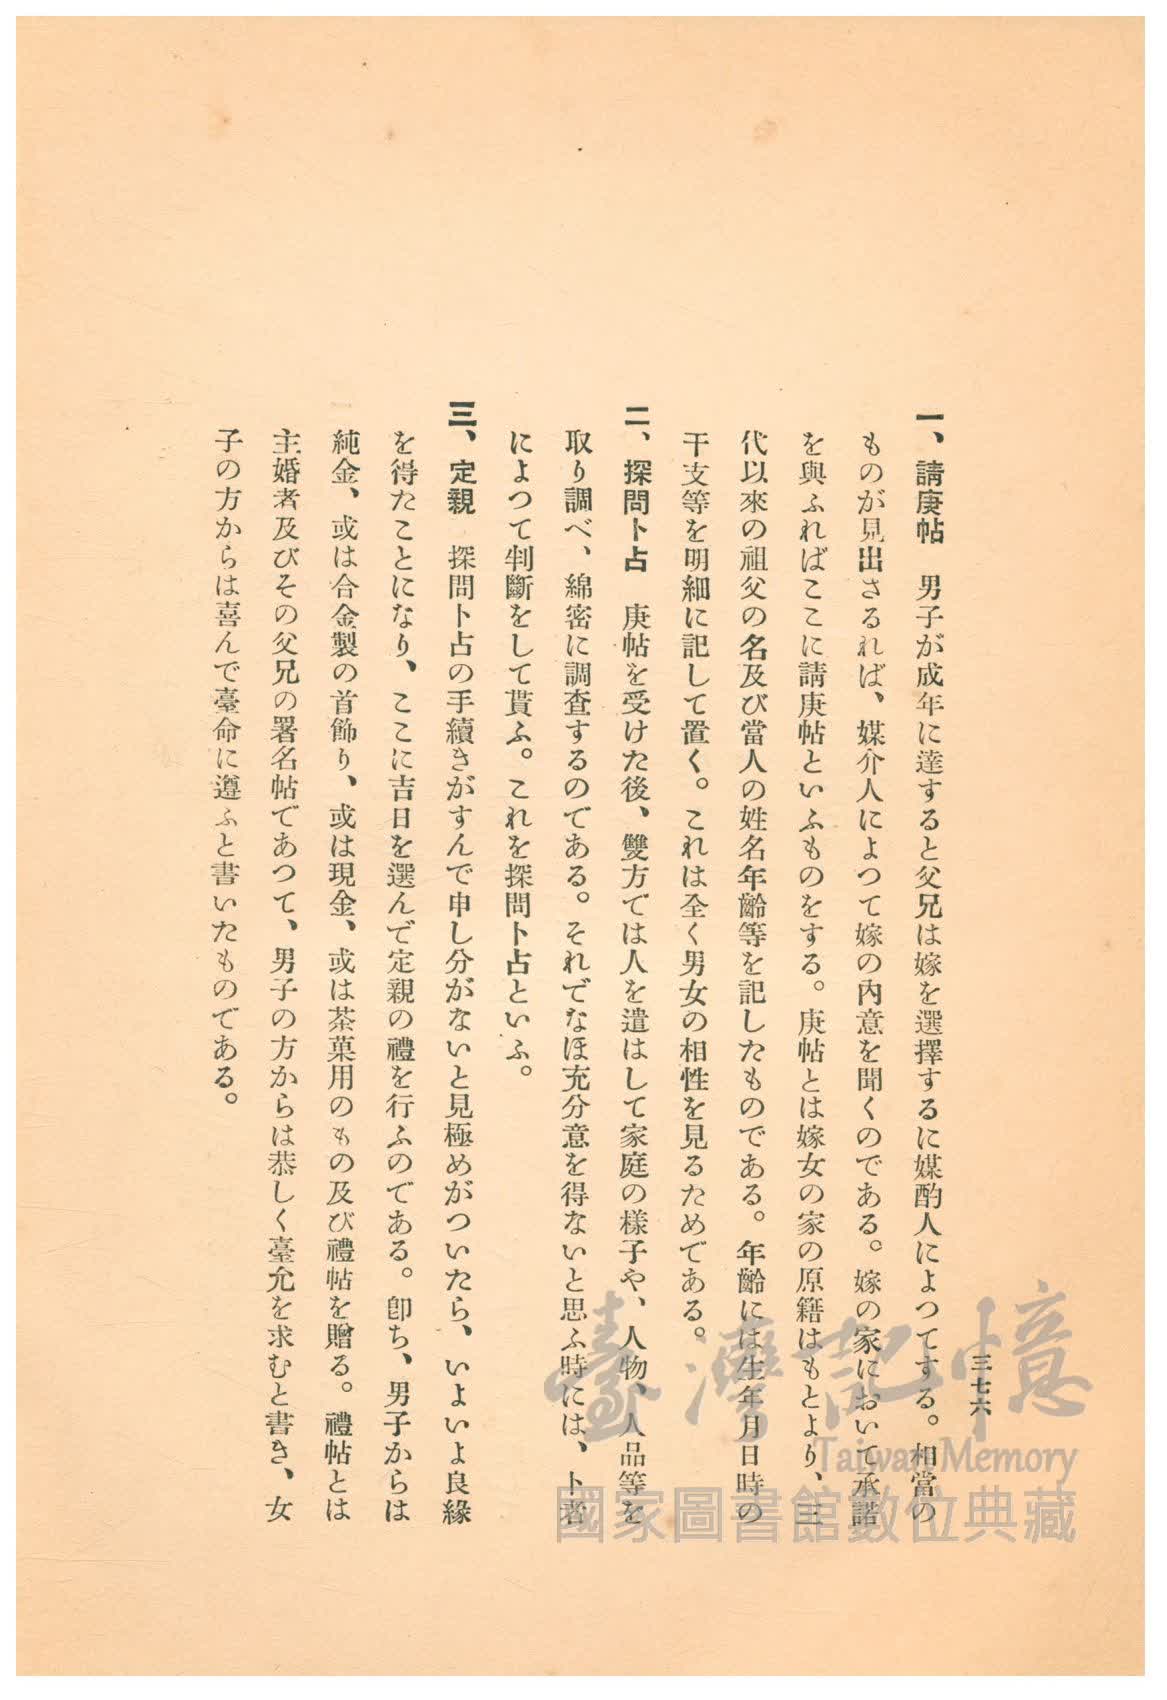 三七六
一、請庚帖　男子が成年に達すると父兄は嫁を選擇するに媒酌人によつてする。相當の
ものが見出さるれば、媒介人によつて嫁の內意を聞くのである。嫁の家において承諾
を與ふればここに請庚帖といふものをする。庚帖とは嫁女の家の原籍はもとより、三
代以來の祖父の名及び當人の姓名年齡等を記したものである。年齡には生年月日時の
干支等を明細に記して置く。これは全く男女の相性を見るためである。
二、探問卜占　庚帖を受けた後、雙方では人を遣はして家庭の樣子や、人物、人品等を
取り調べ、綿密に調査するのである。それでなほ充分意を得ないと思ふ時には、卜者
によつて判斷をして貰ふ。これを探問卜占といふ。
三、定親　探問卜占の手續きがすんで申し分がないと見極めがついたら、いよいよ良緣
を得たことになり、ここに吉日を選んで定親の禮を行ふのである。卽ち、男子からは
純金、或は合金製の首飾り、或は現金、或は茶菓用のもの及び禮帖を贈る。禮帖とは
主婚者及びその父兄の署名帖であつて、男子の方からは恭しく臺允を求むと書き、女
子の方からは喜んで臺命に遵ふと書いたものである。
臺灣記憶
Taiwan Memory
國家圖書館數位典藏